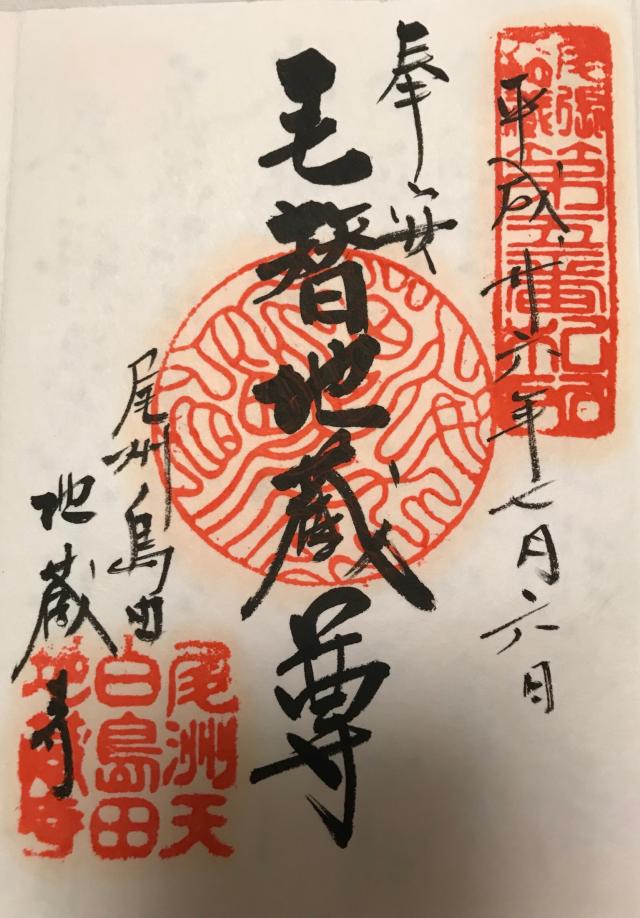 平成廿六年七月六日
尾張
地蔵
第五番札所
奉安
毛替地蔵尊
尾州島田
地蔵寺
尾洲天
白島田
地蔵寺